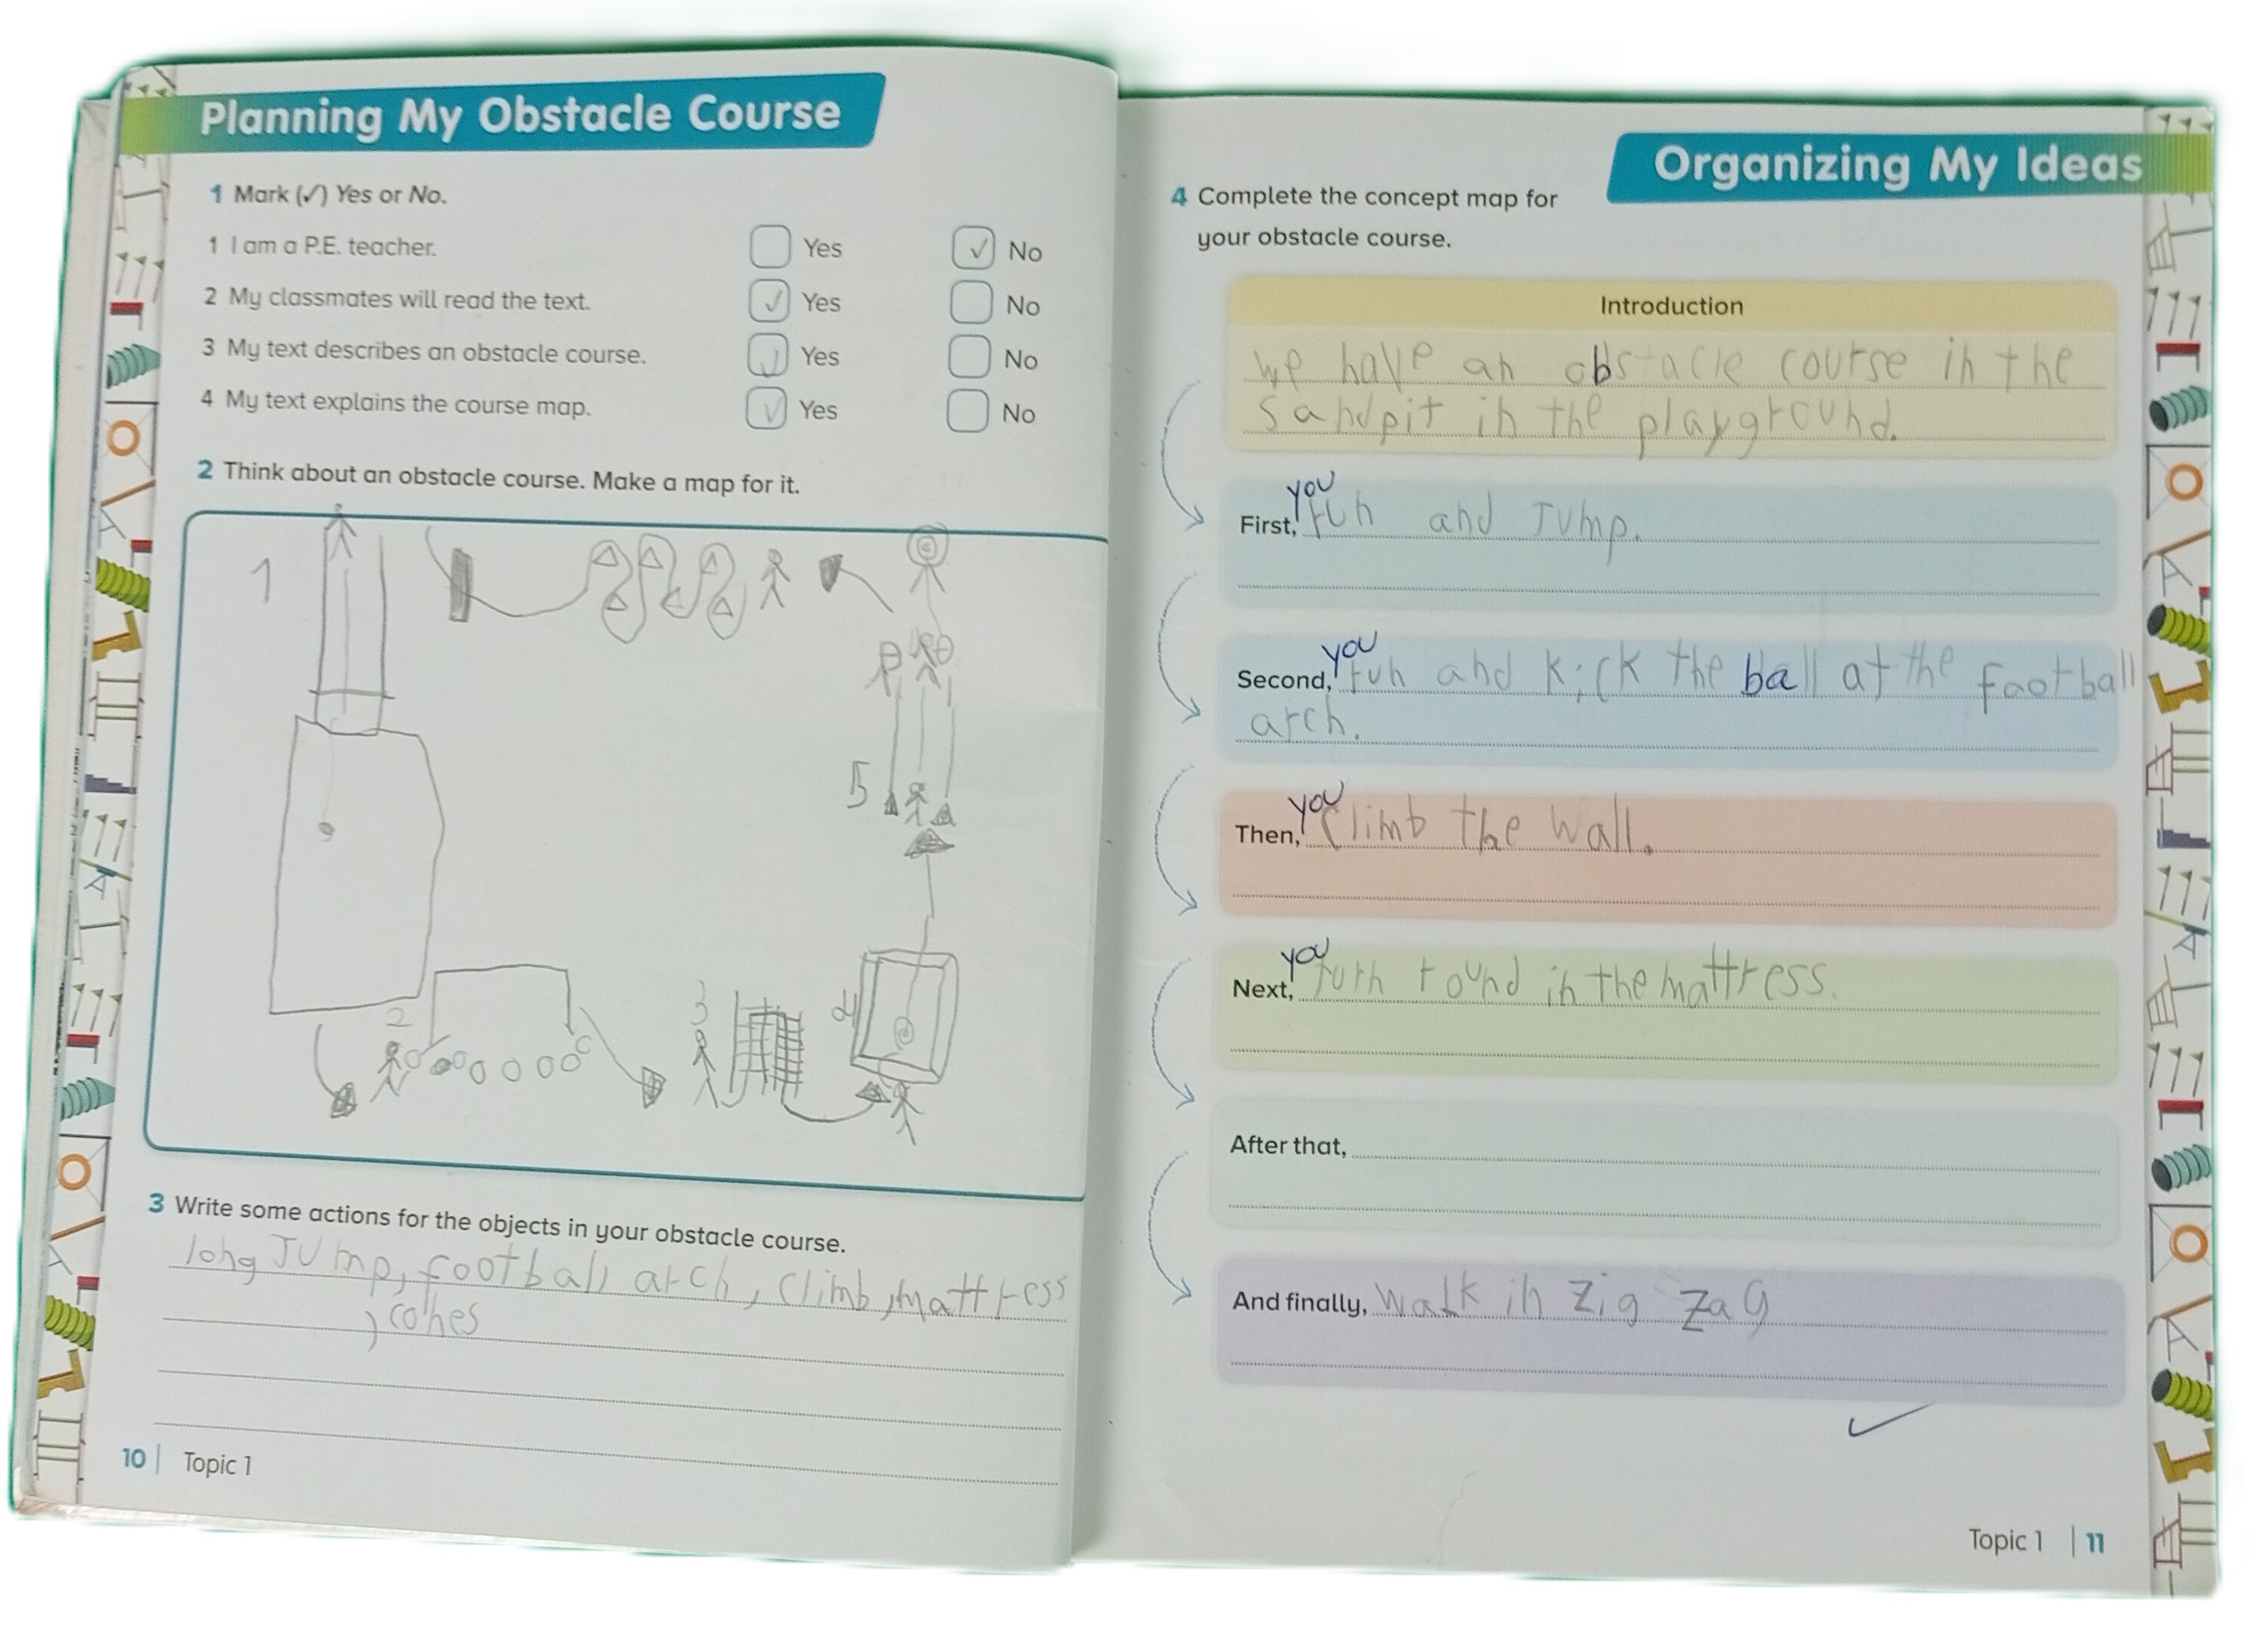 Planning My Obstacle Course
1 Mark (✓) Yes or No.
1 I am a P.E. teacher. Yes ✓ No
2 My classmates will read the text. ✓ Yes No
3 My text describes an obstacle course. ✓ Yes No
4 My text explains the course map. ✓ Yes No
2 Think about an obstacle course. Make a map for it.
1
5
2
3
4
3 Write some actions for the objects in your obstacle course.
long Jump, football arch, climb, mattress
, cones
10 | Topic 1
Organizing My Ideas
4 Complete the concept map for
your obstacle course.
Introduction
we have an obstacle course in the
sandpit in the playground.
you
First, run and Jump.
you
Second, run and kick the ball at the football
arch.
you
Then, climb the wall.
you
Next, turn round in the mattress.
After that,
And finally, walk in zig zag
Topic 1 | 11